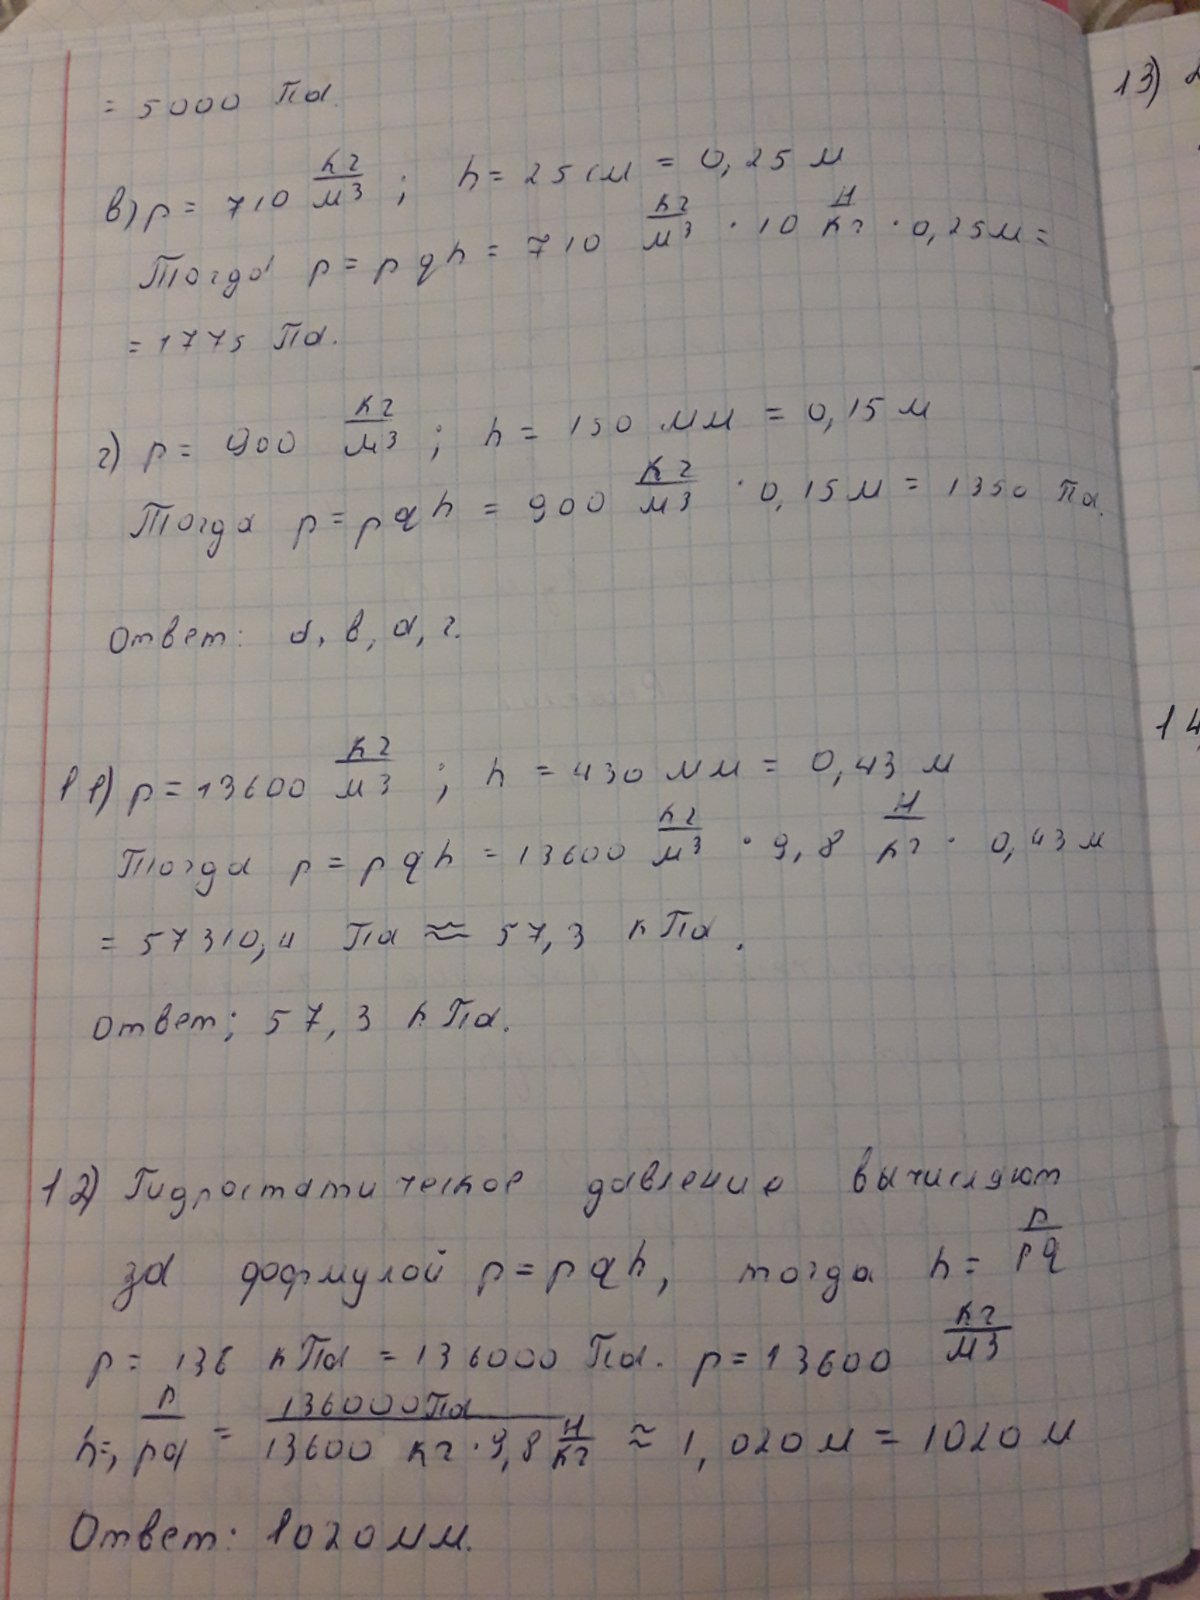 = 5000 Па.
в) p = 710 кг/м3 ; h = 25 см = 0,25 м
Тогда p = pgh = 710 кг/м3 · 10 Н/кг · 0,25 м =
= 1775 Па.
г) p = 900 кг/м3 ; h = 150 мм = 0,15 м
Тогда p = pgh = 900 кг/м3 · 0,15 м = 1350 Па.
Ответ: а, в, а, г.
11) p = 13600 кг/м3 ; h = 430 мм = 0,43 м
Тогда p = pgh = 13600 кг/м3 · 9,8 Н/кг · 0,43 м
= 57310,4 Па ≈ 57,3 кПа.
Ответ; 57,3 кПа.
12) Гидростатическое давление вычисляют
за формулой p = pgh, тогда h = p/pg
p = 136 кПа = 136000 Па. p = 13600 кг/м3
h =, p/pg = 136000 Па/13600 кг · 9,8 Н/кг ≈ 1,020 м = 1020 м
Ответ: 1020 мм.
13)
14